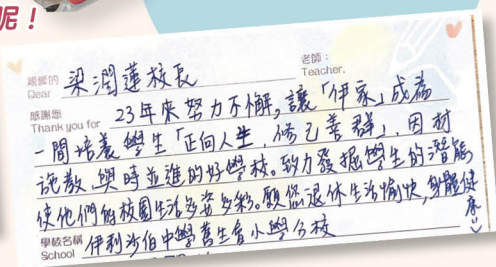 呢！
親愛的 梁潤蓮校長 老師：
Dear Teacher,
感謝您
Thank you for 23年來努力不懈，讓「伊家」成為
一間培養學生「正向人生，修己善群」，因材
施教，與時並進的好學校。致力發掘學生的潛能
使他們的校園生活多姿多彩。願您退休生活愉快，身體健康
學校名稱
School 伊利沙伯中學舊生會小學分校